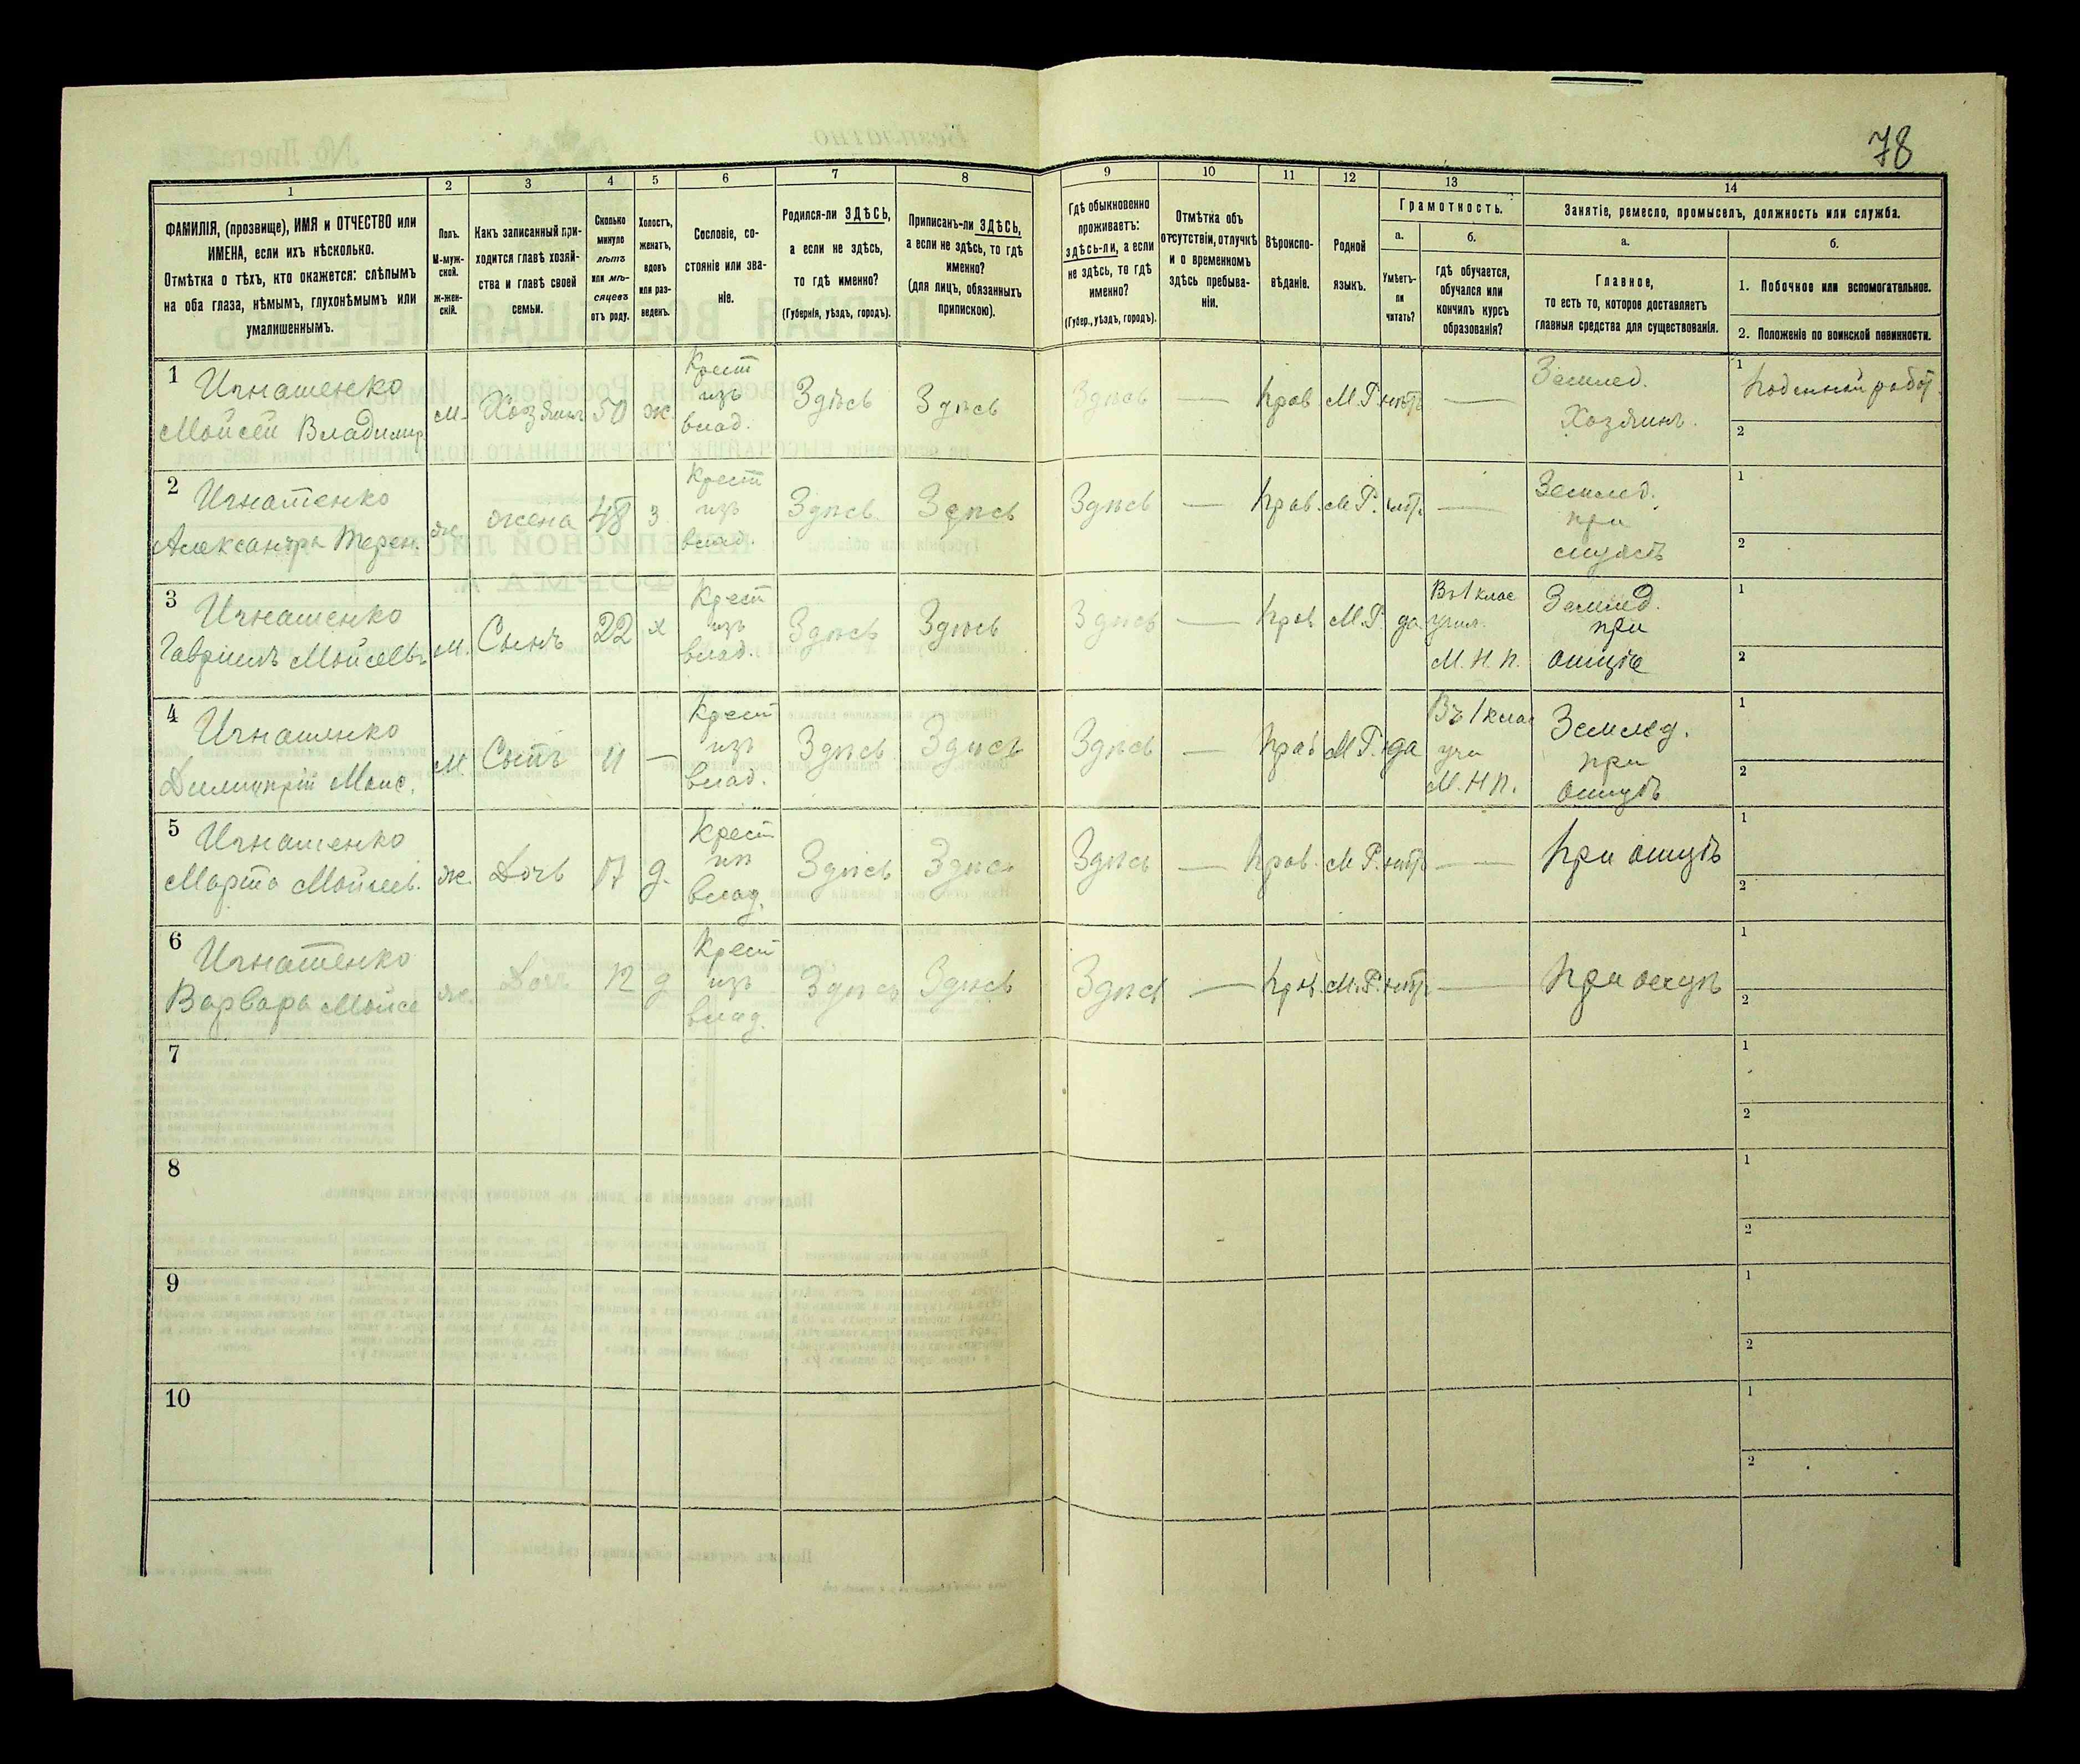 78
1 2 3 4 5 6 7 8 9 10 11 12 13 14
ФАМИЛІЯ, (прозвище), ИМЯ и ОТЧЕСТВО или
ИМЕНА, если ихъ нѣсколько.
Отмѣтка о тѣхъ, кто окажется: слѣпымъ
на оба глаза, нѣмымъ, глухонѣмымъ или
умалишеннымъ.
Полъ.
М-муж-
ской.
ж-жен-
скій.
Какъ записанный при-
ходится главѣ хозяй-
ства и главѣ своей
семьи.
Сколько
минуло
лѣтъ
или мѣ-
сяцевъ
отъ роду.
Холостъ,
женатъ,
вдовъ
или раз-
веденъ.
Сословіе, со-
стояніе или зва-
ніе.
Родился-ли ЗДѢСЬ,
а если не здѣсь,
то гдѣ именно?
(Губернія, уѣздъ, городъ).
Приписанъ-ли ЗДѢСЬ,
а если не здѣсь, то гдѣ
именно?
(для лицъ, обязанныхъ
припискою).
Гдѣ обыкновенно
проживаетъ:
здѣсь-ли, а если
не здѣсь, то гдѣ
именно?
(Губер., уѣздъ, городъ).
Отмѣтка объ
отсутствіи, отлучкѣ
и о временномъ
здѣсь пребыва-
ніи.
Вѣроиспо-
вѣданіе.
Родной
языкъ.
Грамотность.
а.
Умѣетъ-
ли
читать?
б.
гдѣ обучается,
обучался или
кончилъ курсъ
образованія?
Занятіе, ремесло, промыселъ, должность или служба.
а.
Главное,
то есть то, которое доставляетъ
главныя средства для существованія.
б.
1. Побочное или вспомогательное.
2. Положеніе по воинской повинности.
1 Игнатенко
Мойсей Владимир
м. Хозяинъ 50 ж.
Крест
изъ
влад.
Здѣсь Здѣсь Здѣсь — Прав. М.Р. нѣтъ —
Землед.
Хозяинъ.
1 Поденной работ.
2
2 Игнатенко
Александра Терен.
ж. жена 48 з
Крест
изъ
влад.
Здѣсь Здѣсь Здѣсь — Прав. М.Р. нѣтъ —
Землед.
при
мужѣ
1
2
3 Игнатенко
Гавріилъ Мойсеевъ
м. Сынъ 22 х
Крест
изъ
влад.
Здѣсь Здѣсь Здѣсь — Прав. М.Р. да
Въ 1 клас
учил.
М.Н.П.
Землед.
при
отцѣ
1
2
4 Игнатенко
Димитрій Моис.
м. Сынъ 11 —
Крест
изъ
влад.
Здѣсь Здѣсь Здѣсь — Прав М.Р. да
Въ 1 клас
учи
М.Н.П.
Землед.
при
отцѣ
1
2
5 Игнатенко
Марта Мойсеев.
ж. Дочь 17 д.
Крест
из
влад.
Здѣсь Здѣсь Здѣсь — Прав. М.Р. нѣтъ —
При отцѣ
1
2
6 Игнатенко
Варвара Мойсе
ж. Дочь 12 д
Крест
изъ
влад.
Здѣсь Здѣсь Здѣсь — Прав. М.Р. нѣтъ —
При отцѣ
1
2
7
1
2
8
1
2
9
1
2
10
1
2